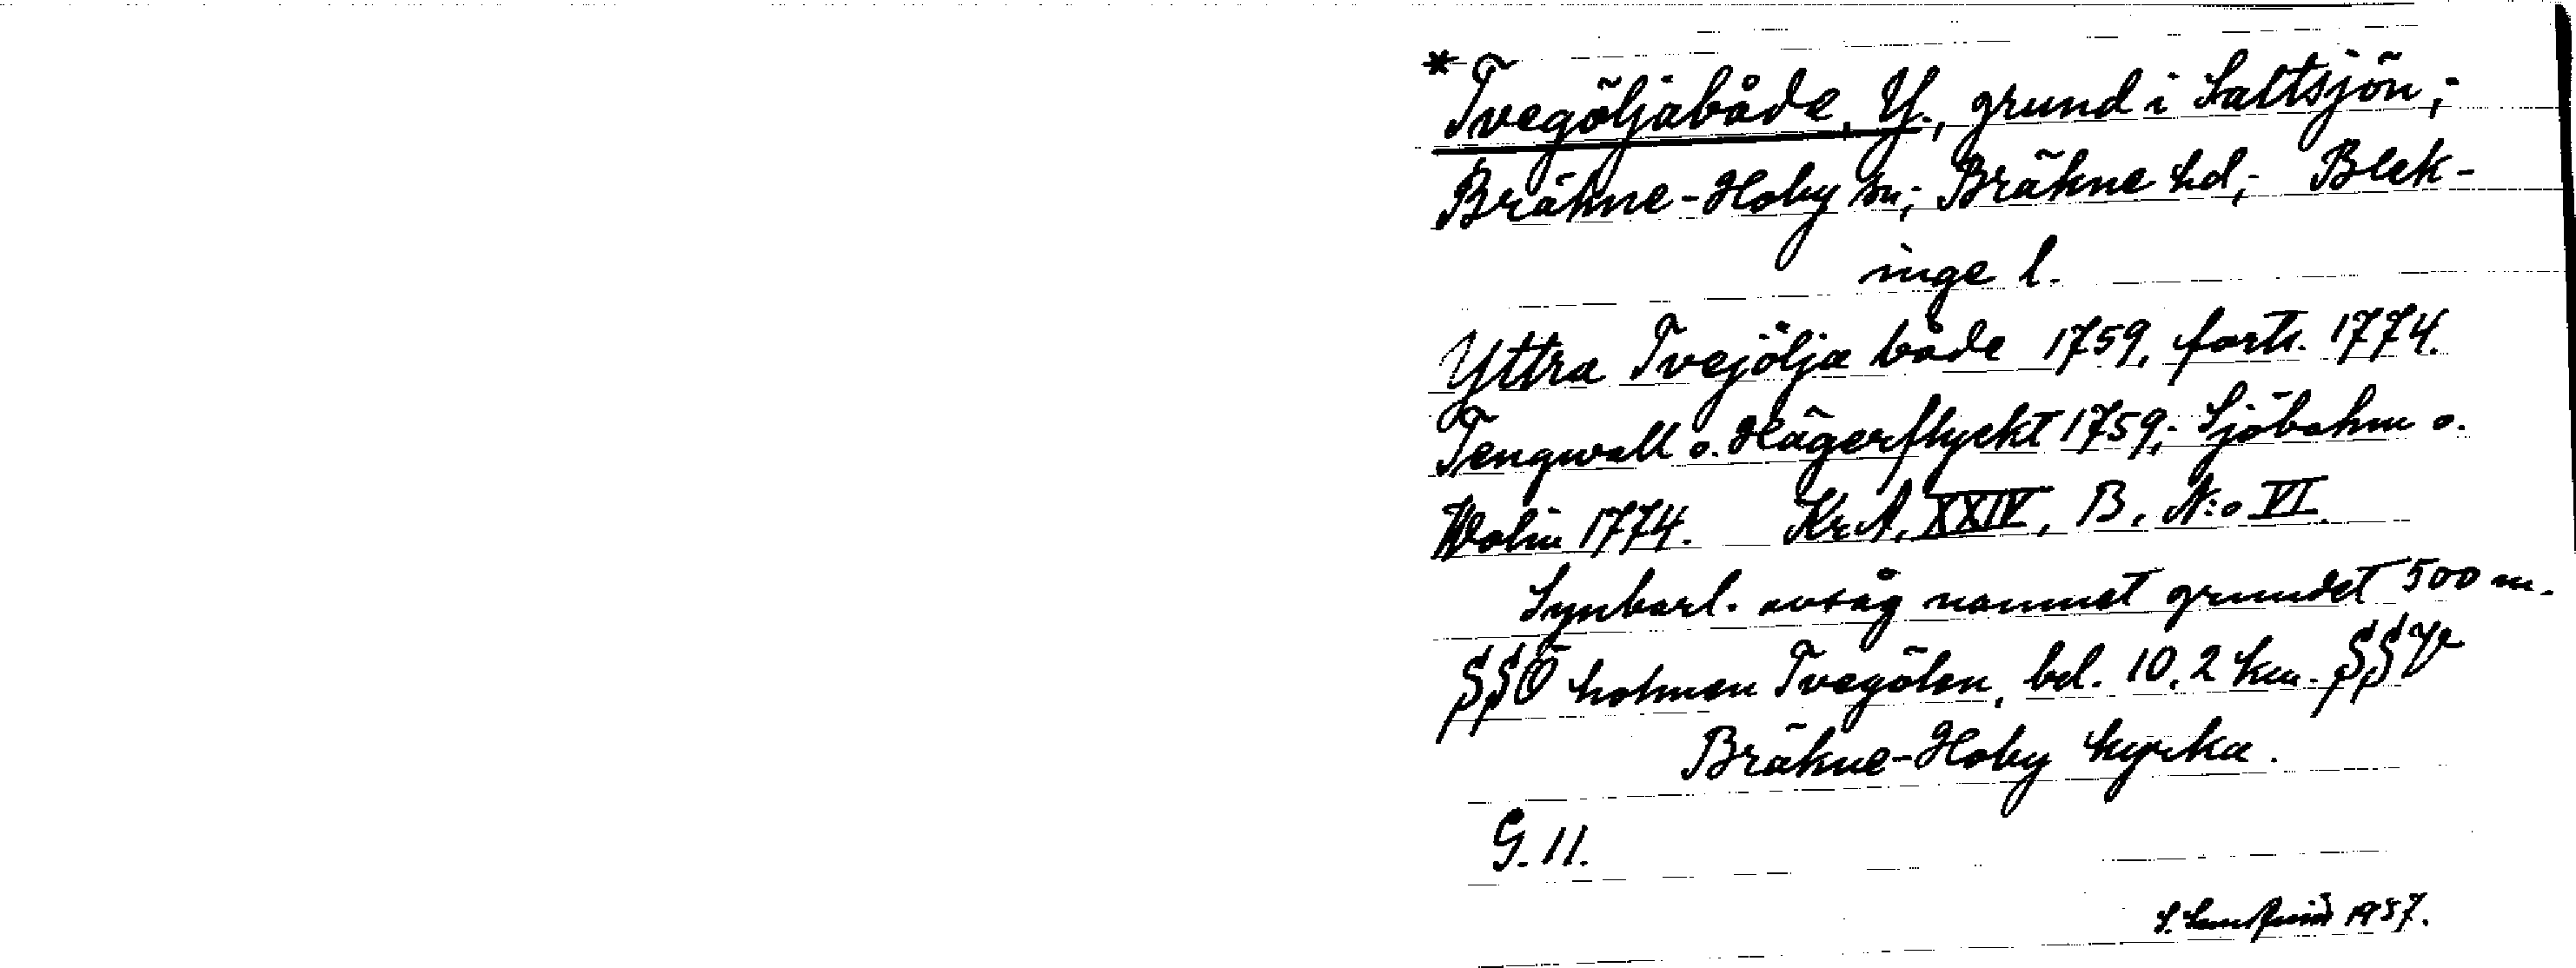 *Tvegöljabåde, Y., grund i Saltsjön;
Bräkne-Hoby sn; Bräkne hd; Blek-
inge l.
Yttra Tvejölja både 1759, forts. 1774.
Tengwall o. Hägerflyckt 1759; Sjöbohm o.
Wolin 1774. KrA, XXIV, B, N:o VI.
Synbarl. avsåg namnet grundet 500 m.
SSÖ holmen Tvegölen, bel. 10,2 km. SSV
Bräkne-Hoby kyrka.
G. 11.
S. 1957.